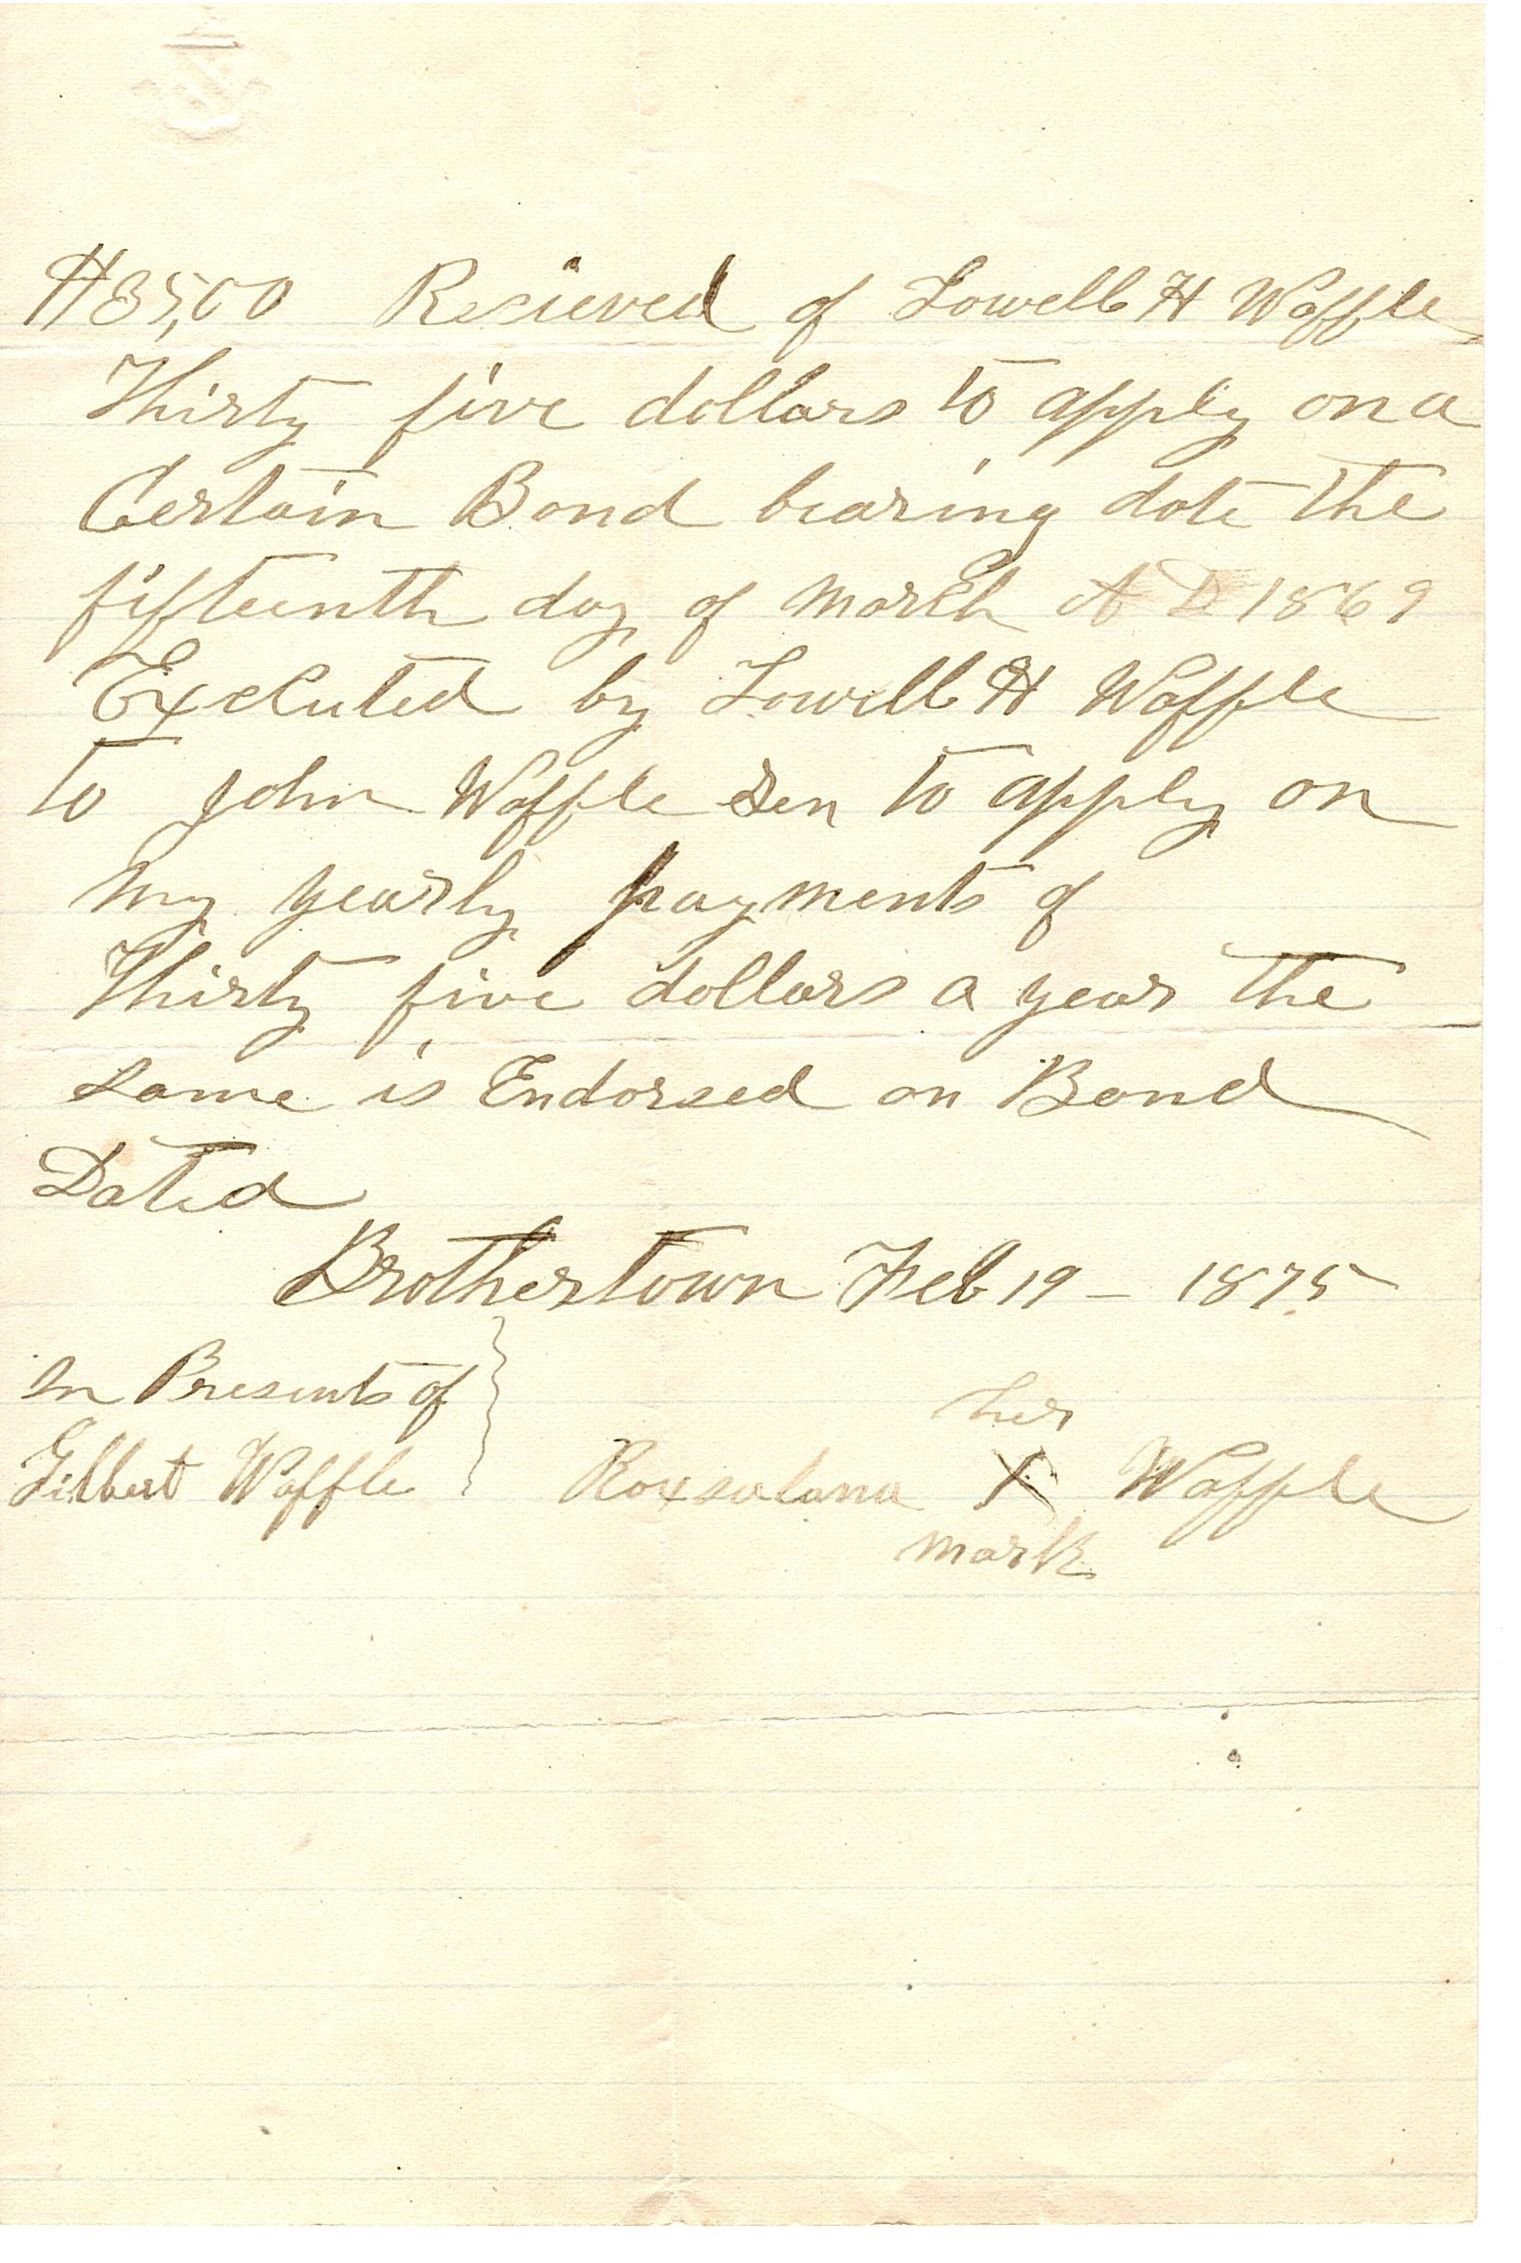 $35,00 Resieved of Lowell H Waffle
Thirty five dollars to apply on a
Certain Bond bearing date the
fifteenth day of March A D 1869
Executed by Lowell H Waffle
to John Waffle Sen to apply on
my yearly payments of
Thirty five dollars a year the
same is Endorsed on Bond
Dated
Brothertown Feb 19 - 1875
In Presents of
her
Gilbert Waffle Roxsalana X Waffle
mark